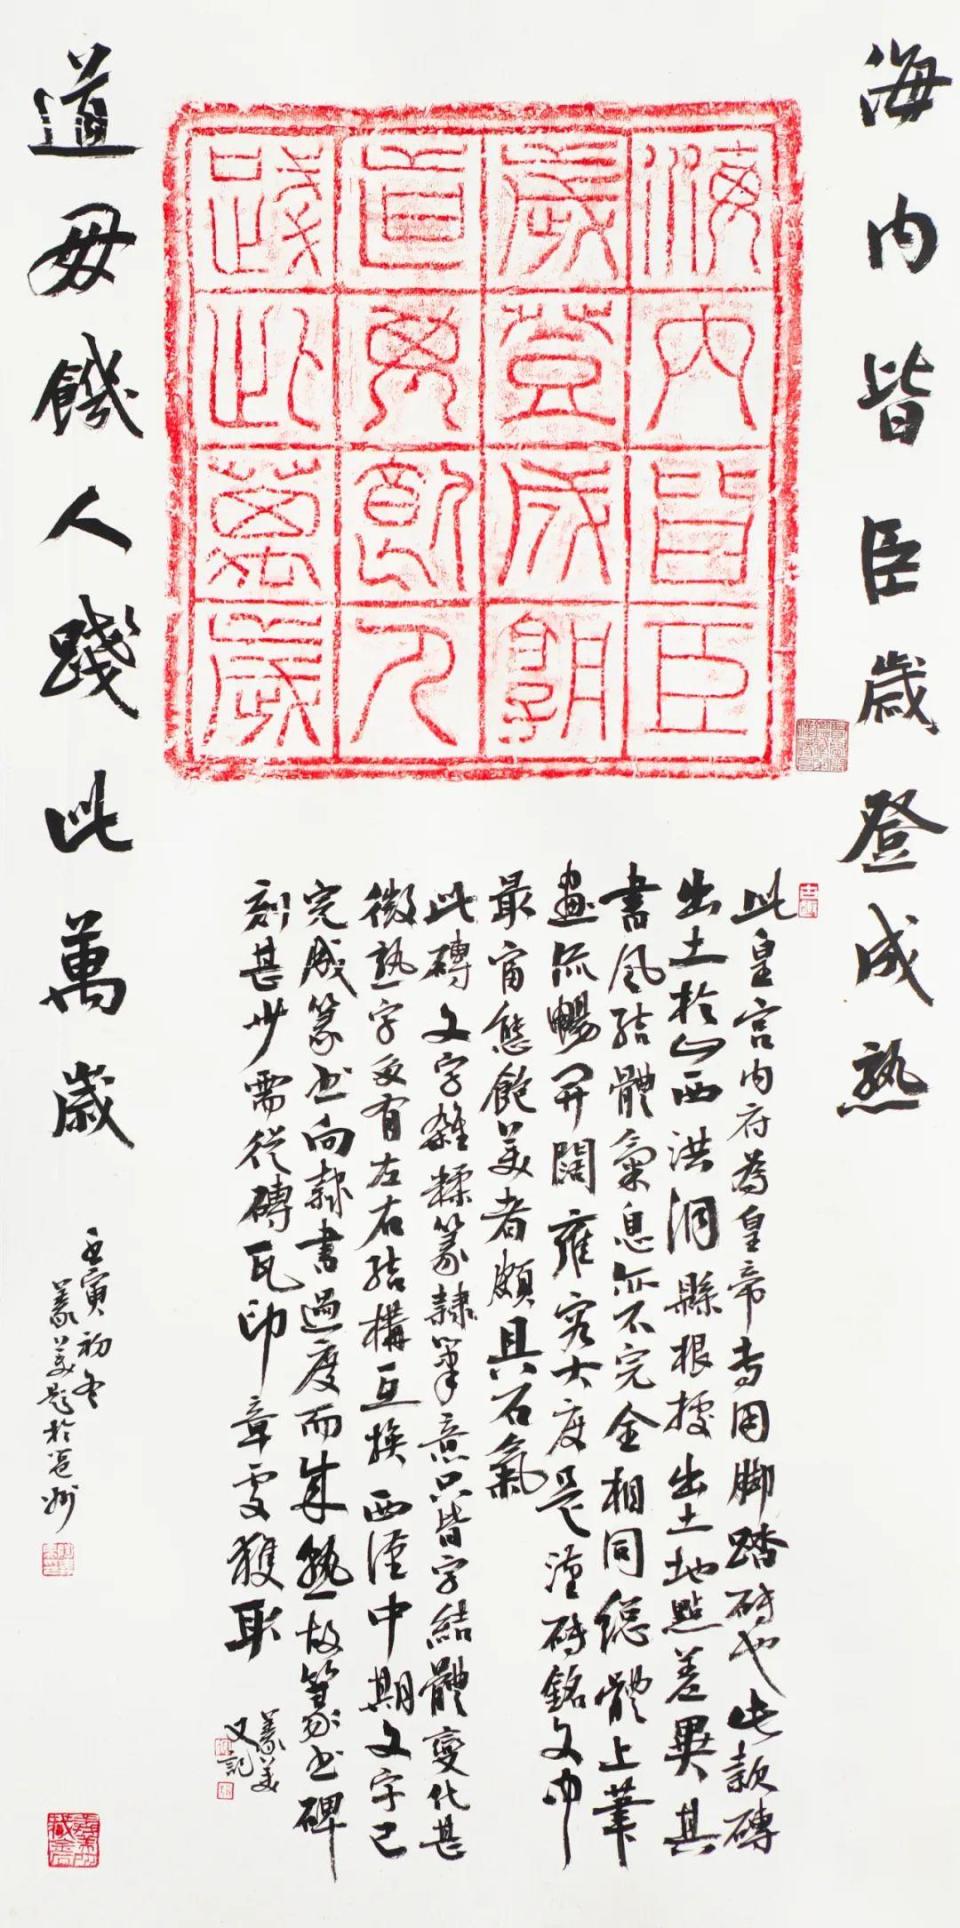 海内皆臣歲登成熟
海内皆臣
歲登成孰
道毋飢人
踐此萬歲
道毋饑人踐此萬歲
壬寅初冬
美題於邕州
此皇宫内府為皇帝专用脚踏砖也此款磚
出土於山西洪洞縣根據出土地點差異其
書風結體氣息亦不完全相同總體上筆
畫流暢開闊雍容大度是漢磚銘文中
最富態飽美者頗具石氣
此磚文字雜糅篆隸筆意只皆字結體變化甚
微熟字更有左右結構互换西漢中期文字已
完成篆书向隸書過度而成熟故篆书碑
刻甚少需從磚瓦印章处獲取
美
又記